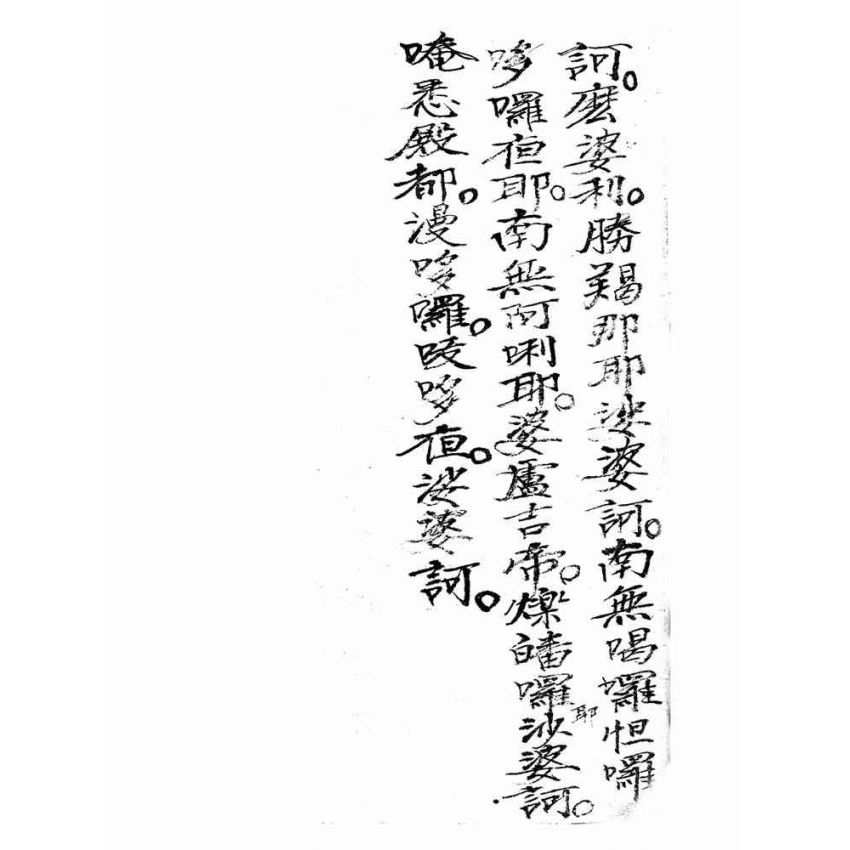 訶。麽婆利。勝羯那耶娑婆訶。南無喝囉怛囉
哆囉夜耶。南無阿唎耶。婆盧吉帝。爍皤囉耶沙婆訶。
唵悉殿都。漫哆囉。跋哆夜。娑婆訶。